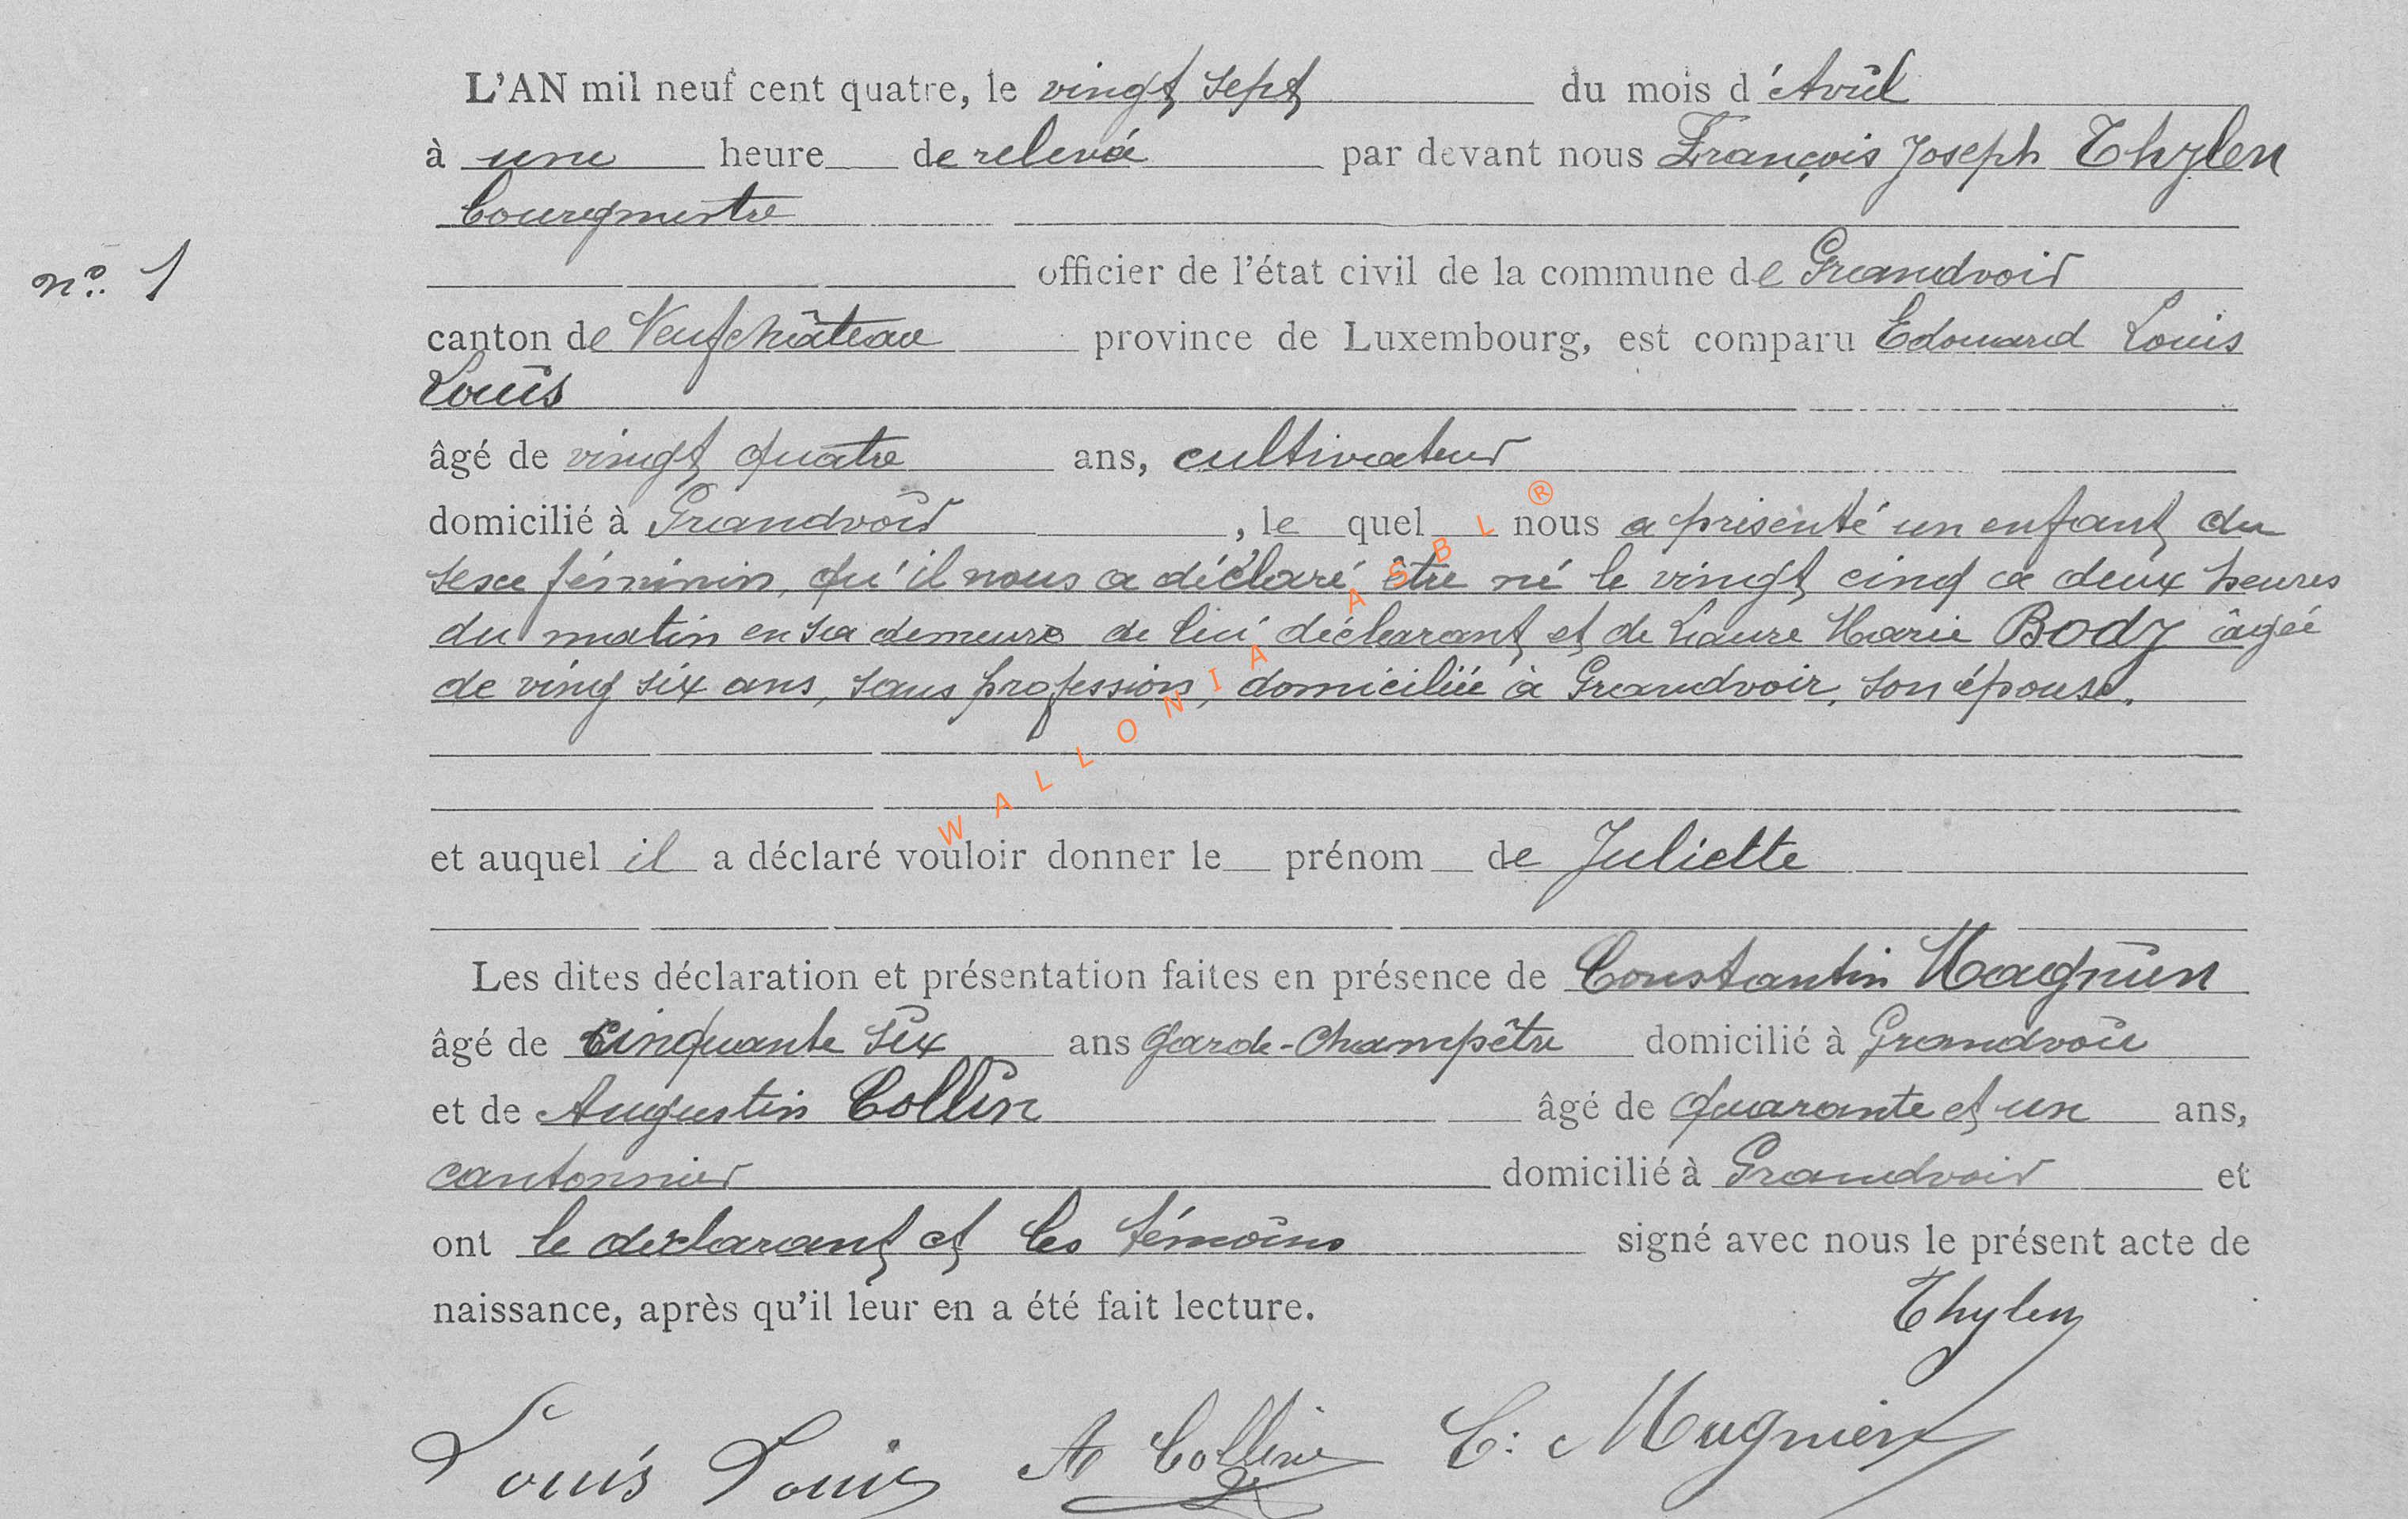 L'AN mil neuf cent quatre, le vingt sept du mois d'Avril
à une heure de relevée par devant nous François Joseph Thylen
bourgmestre
n° 1
officier de l'état civil de la commune de Grandvoir
canton de Neufchâteau province de Luxembourg, est comparu Edouard Louis
Louis
âgé de vingt quatre ans, cultivateur
domicilié à Grandvoir, le quel nous a présenté un enfant du
sexe féminin, qu'il nous a déclaré être né le vingt cinq à deux heures
du matin en sa demeure de lui déclarant et de Laure Marie Body âgée
de ving six ans, sans profession, domiciliée à Grandvoir, son épouse.
WALLONIA ASBL ®
et auquel il a déclaré vouloir donner le prénom de Juliette
Les dites déclaration et présentation faites en présence de Constantin Magnien
âgé de cinquante six ans garde-Champêtre domicilié à Grandvoir
et de Augustin Collin âgé de quarante et un ans,
cantonnier domicilié à Grandvoir et
ont le déclarant et les témoins signé avec nous le présent acte de
naissance, après qu'il leur en a été fait lecture.
Thylen
Louis Louis A Collin C: Magnien